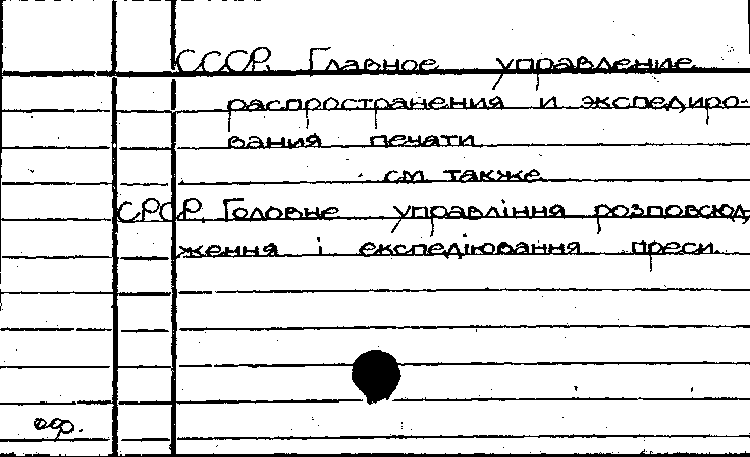 СССР. Главное управление
распространения и экспедиро-
вания печати
см. также
СРСР. Головне управління розповсюд-
ження і експедіювання преси.